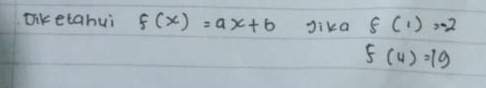 Diketahui f(x) = ax+b Jika f (1) =-2
f (4) =19